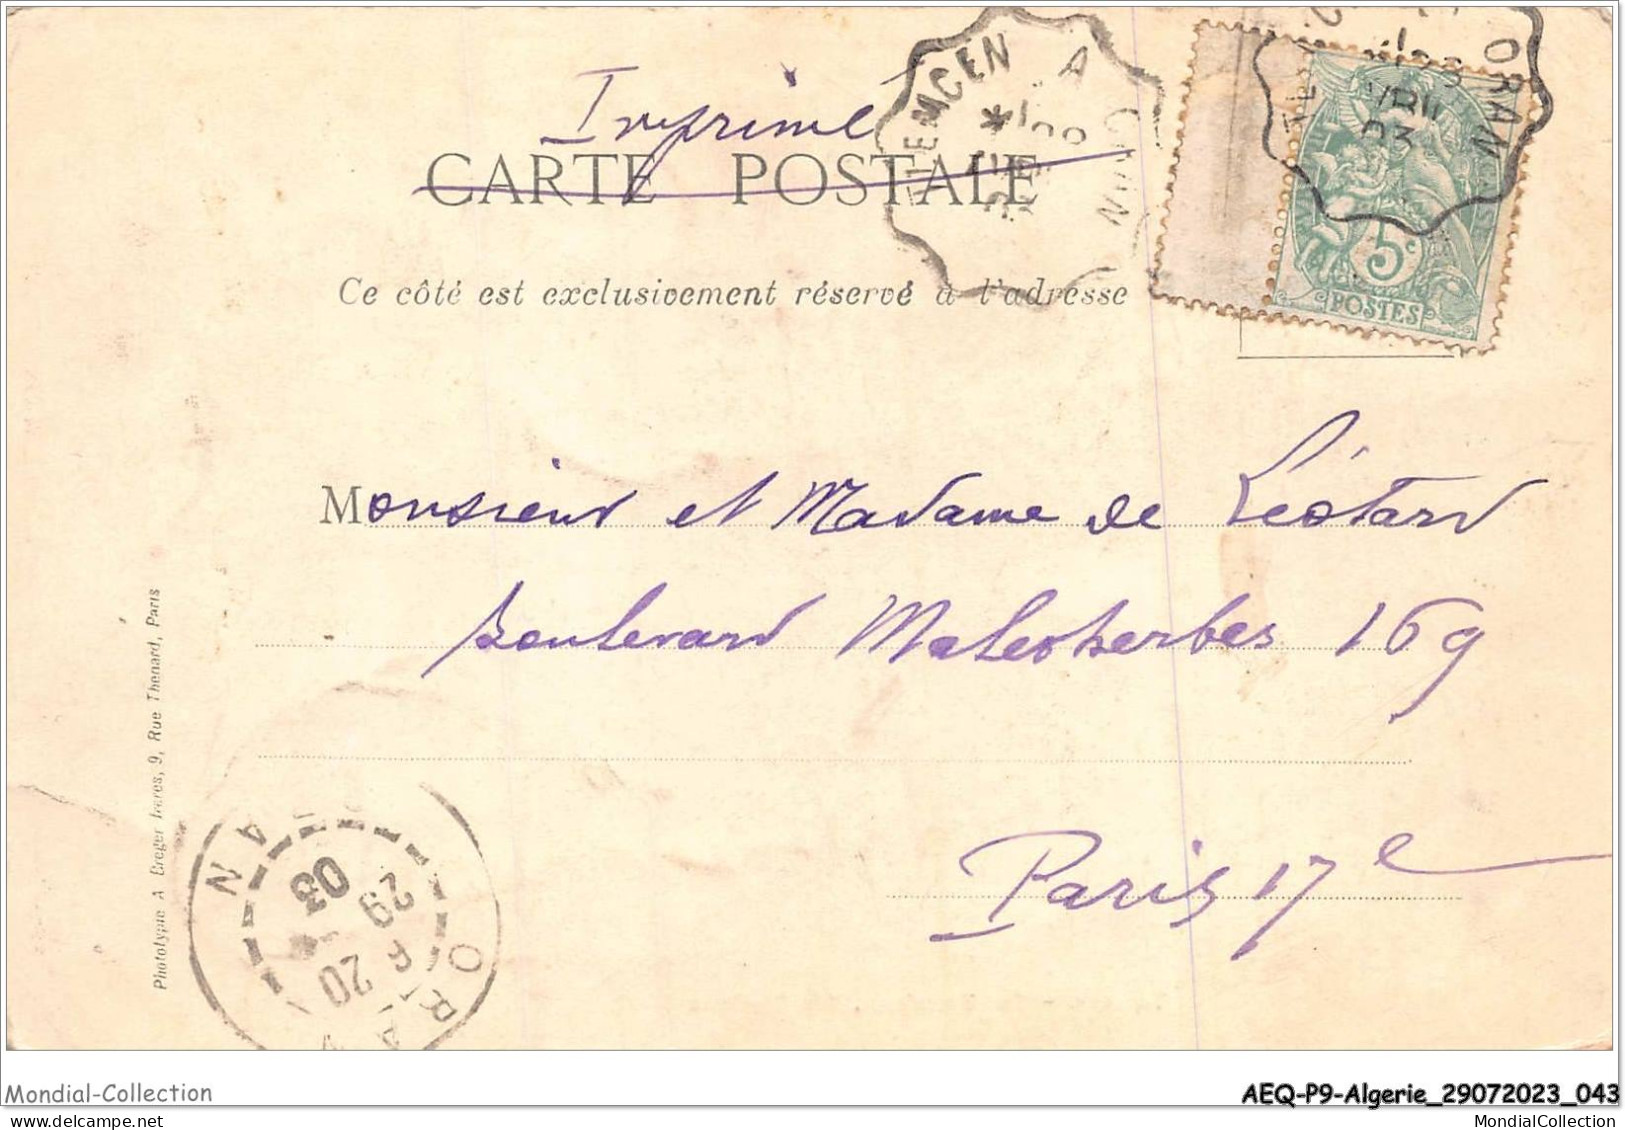 Imprimé
CARTE POSTALE
Ce côté est exclusivement réservé à l'adresse
TLEMCEN A ORAN
ORAN
03
5c
POSTES
Monsieur et Madame de Léotard
Boulevard Malesherbes 169
Paris 17e
Phototypie A Breger frères, 9, Rue Thenard, Paris
ORAN
ORAN
20
29
03
Mondial-Collection
AEQ-P9-Algerie_29072023_043
Mondial-Collection.net
MondialCollection